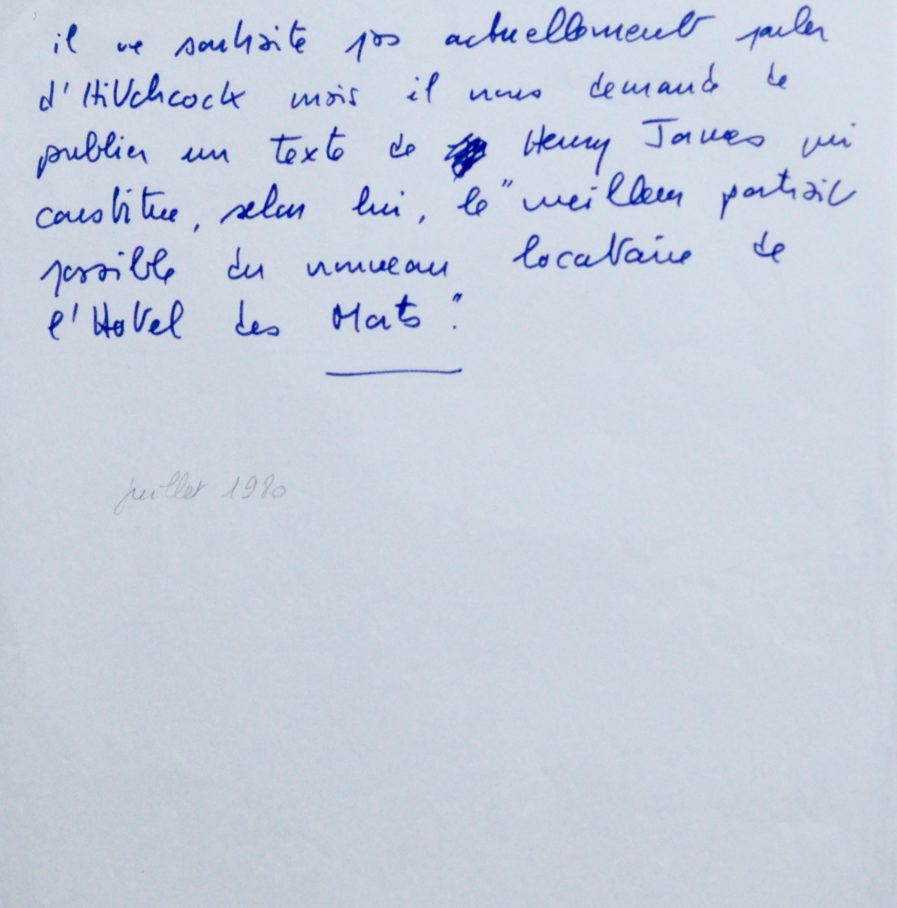 il ne souhaite pas actuellement parler
d'Hitchcock mais il nous demande de
publier un texte de Henry James qui
constitue, selon lui, le "meilleur portrait
possible du nouveau locataire de
l'Hotel des Morts".
juillet 1980